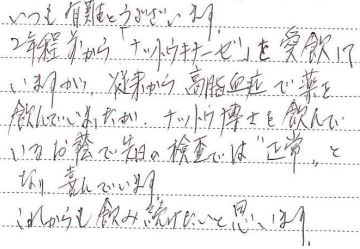 いつも有難とうございます。
2年程前から「ナットウキナーゼ」を愛飲して
いますが、従来から高脂血症で薬を
飲んでいましたが、ナットウ博士を飲んで
いるお蔭で先日の検査では"正常"と
なり喜んでいます。
これからも飲み続けたいと思います。